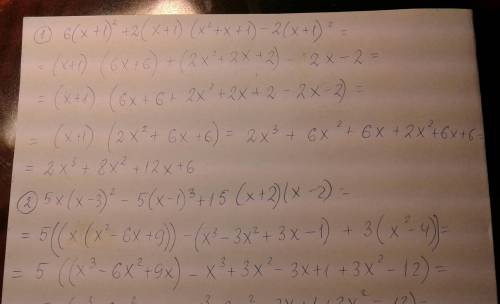 ① 6(x+1)² + 2(x+1)(x²+x+1) - 2(x+1)² =
= (x+1) (6x+6) + (2x²+2x+2) - 2x-2 =
= (x+1) (6x+6+2x²+2x+2-2x-2) =
= (x+1) (2x²+6x+6) = 2x³ + 6x² + 6x + 2x²+6x+6=
= 2x³ + 8x² + 12x + 6
② 5x(x-3)² - 5(x-1)³ + 15 (x+2)(x-2) =
= 5((x(x²-6x+9)) - (x³-3x²+3x-1) + 3(x²-4))=
= 5 ((x³-6x²+9x) - x³+3x²-3x+1 + 3x²-12) =